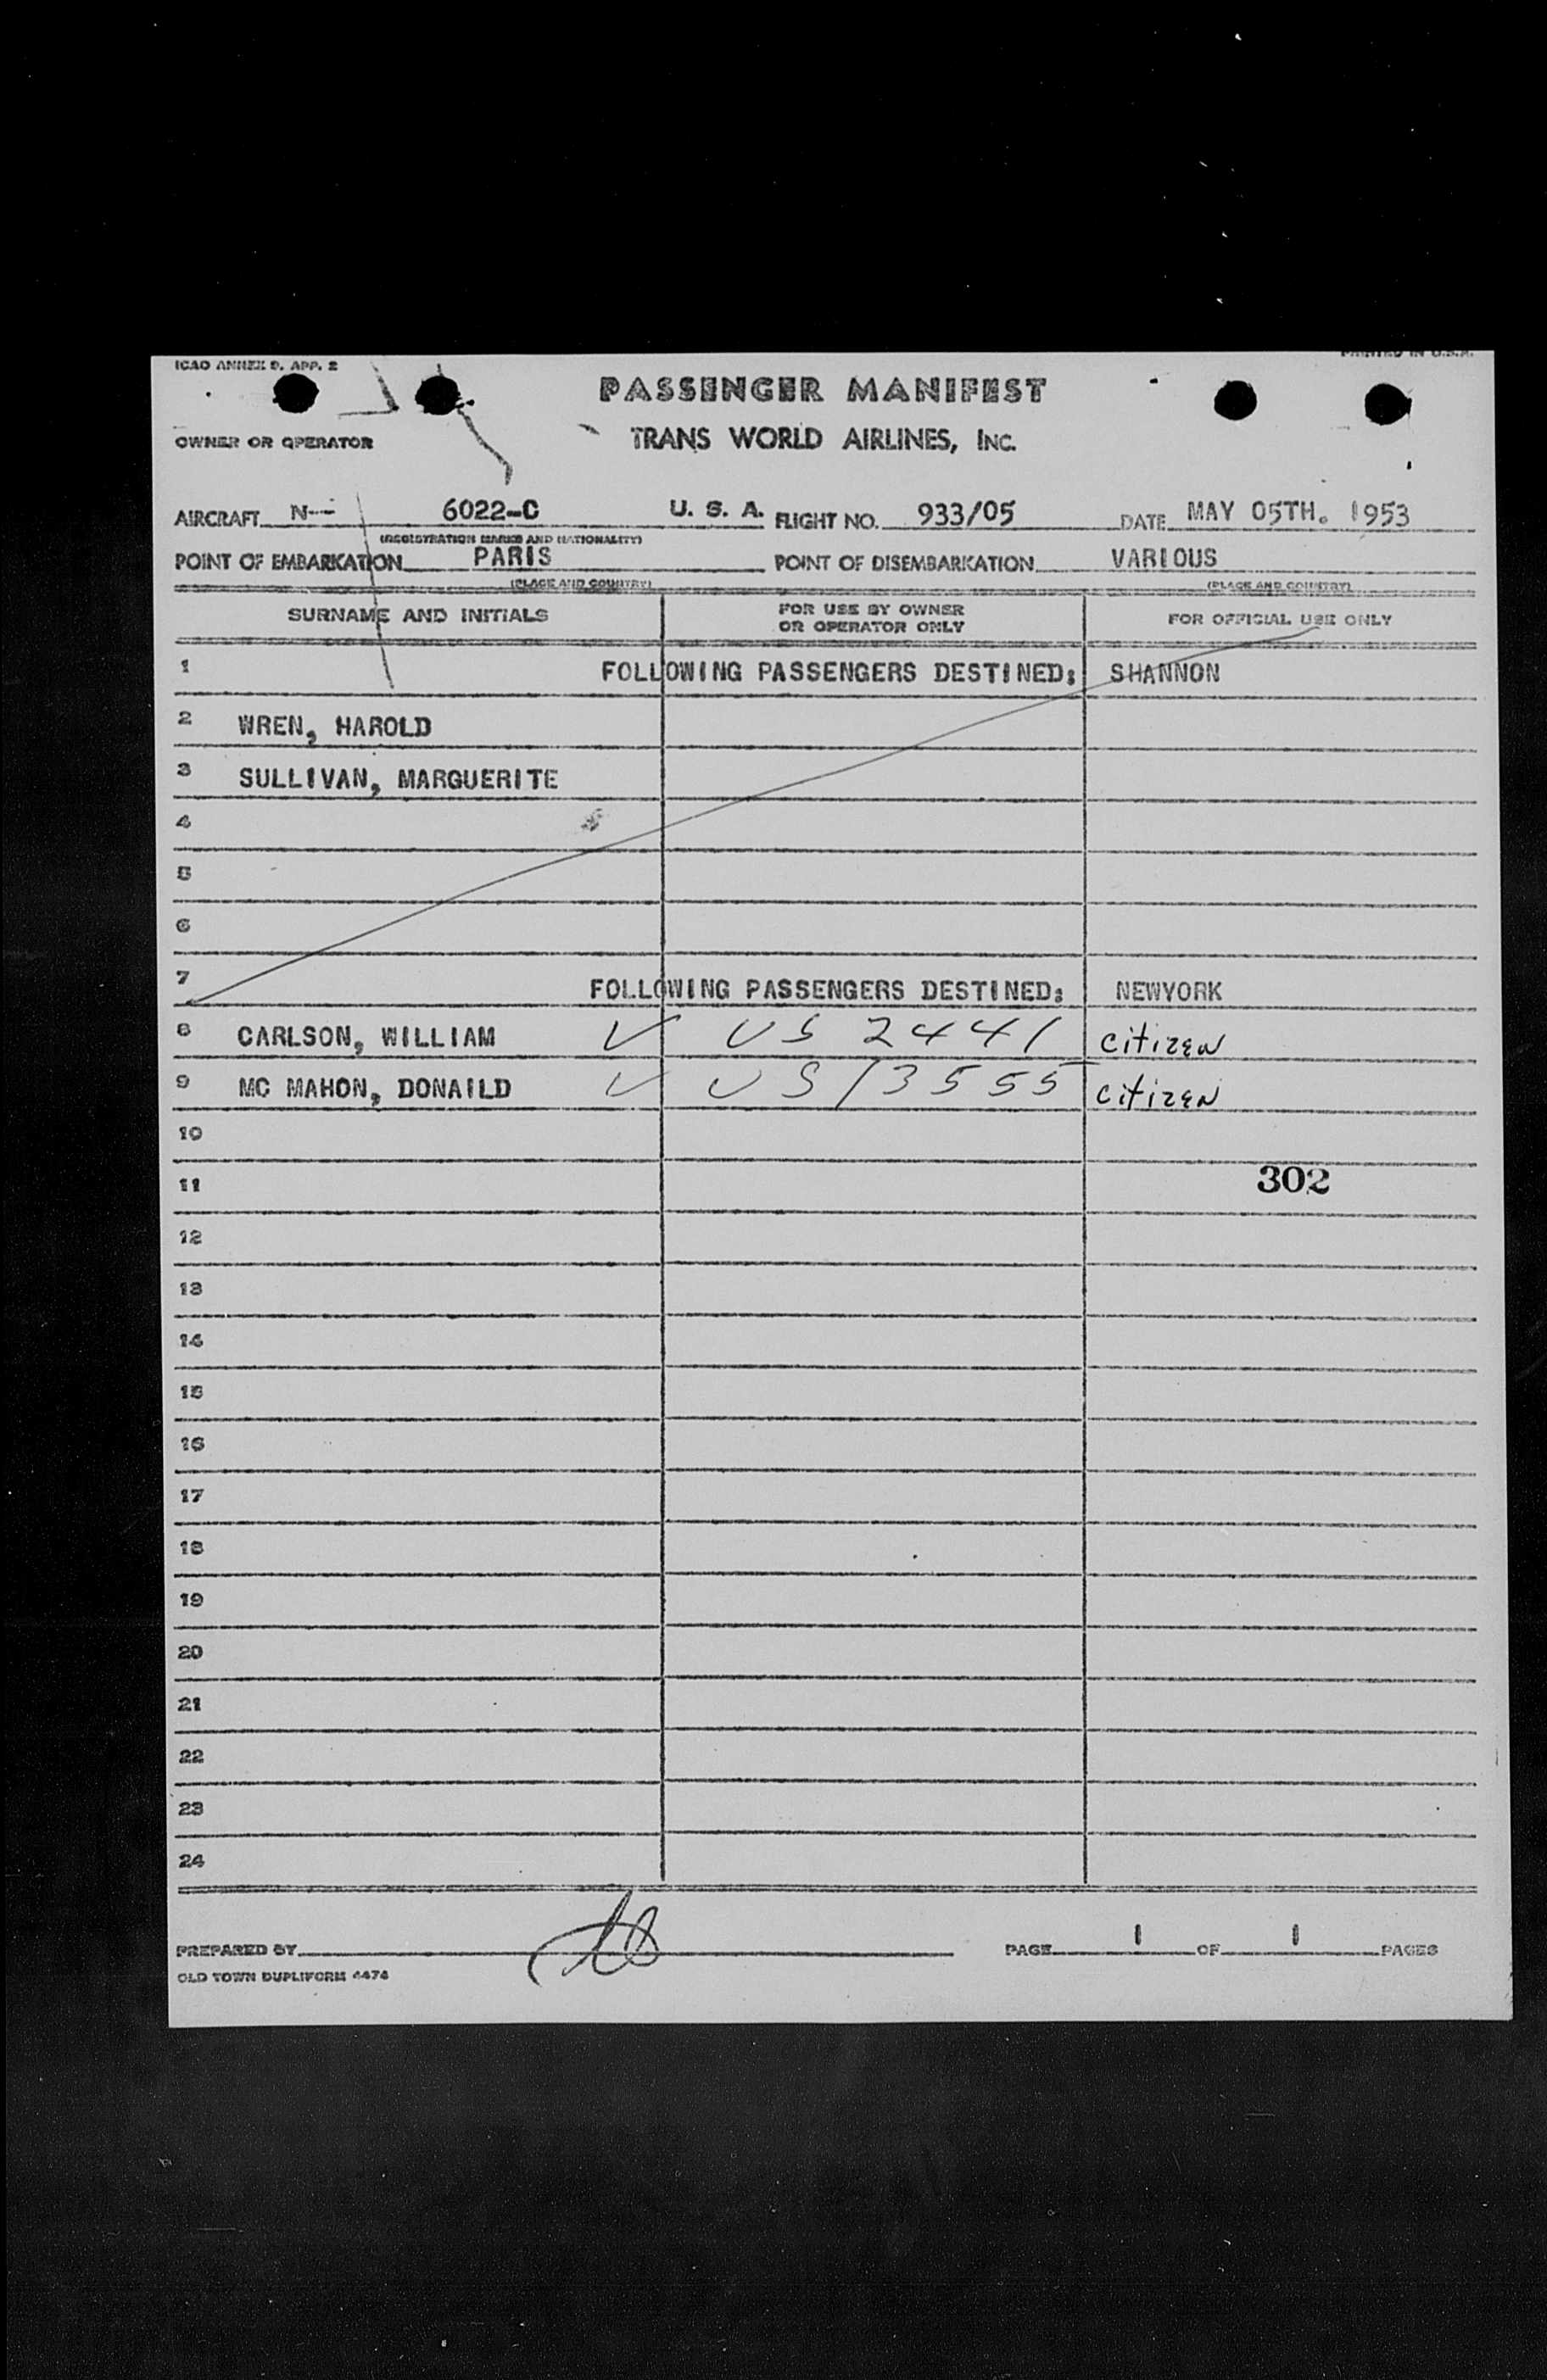 ICAO ANNEX 9, APP. 2
PRINTED IN U.S.A.
PASSENGER MANIFEST
OWNER OR OPERATOR TRANS WORLD AIRLINES, INC.
AIRCRAFT N-- 6022-C U. S. A. FLIGHT NO. 933/05 DATE MAY 05TH. 1953
(REGISTRATION MARKS AND NATIONALITY)
POINT OF EMBARKATION PARIS POINT OF DISEMBARKATION VARIOUS
(PLACE AND COUNTRY) (PLACE AND COUNTRY)
SURNAME AND INITIALS FOR USE BY OWNER OR OPERATOR ONLY FOR OFFICIAL USE ONLY
1 FOLLOWING PASSENGERS DESTINED: SHANNON
2 WREN, HAROLD
3 SULLIVAN, MARGUERITE
4
5
6
7 FOLLOWING PASSENGERS DESTINED: NEWYORK
8 CARLSON, WILLIAM ✓ US 2441 citizen
9 MC MAHON, DONAILD ✓ US 13555 citizen
10
11 302
12
13
14
15
16
17
18
19
20
21
22
23
24
PREPARED BY PAGE 1 OF 1 PAGES
OLD TOWN DUPLIFORM 4474